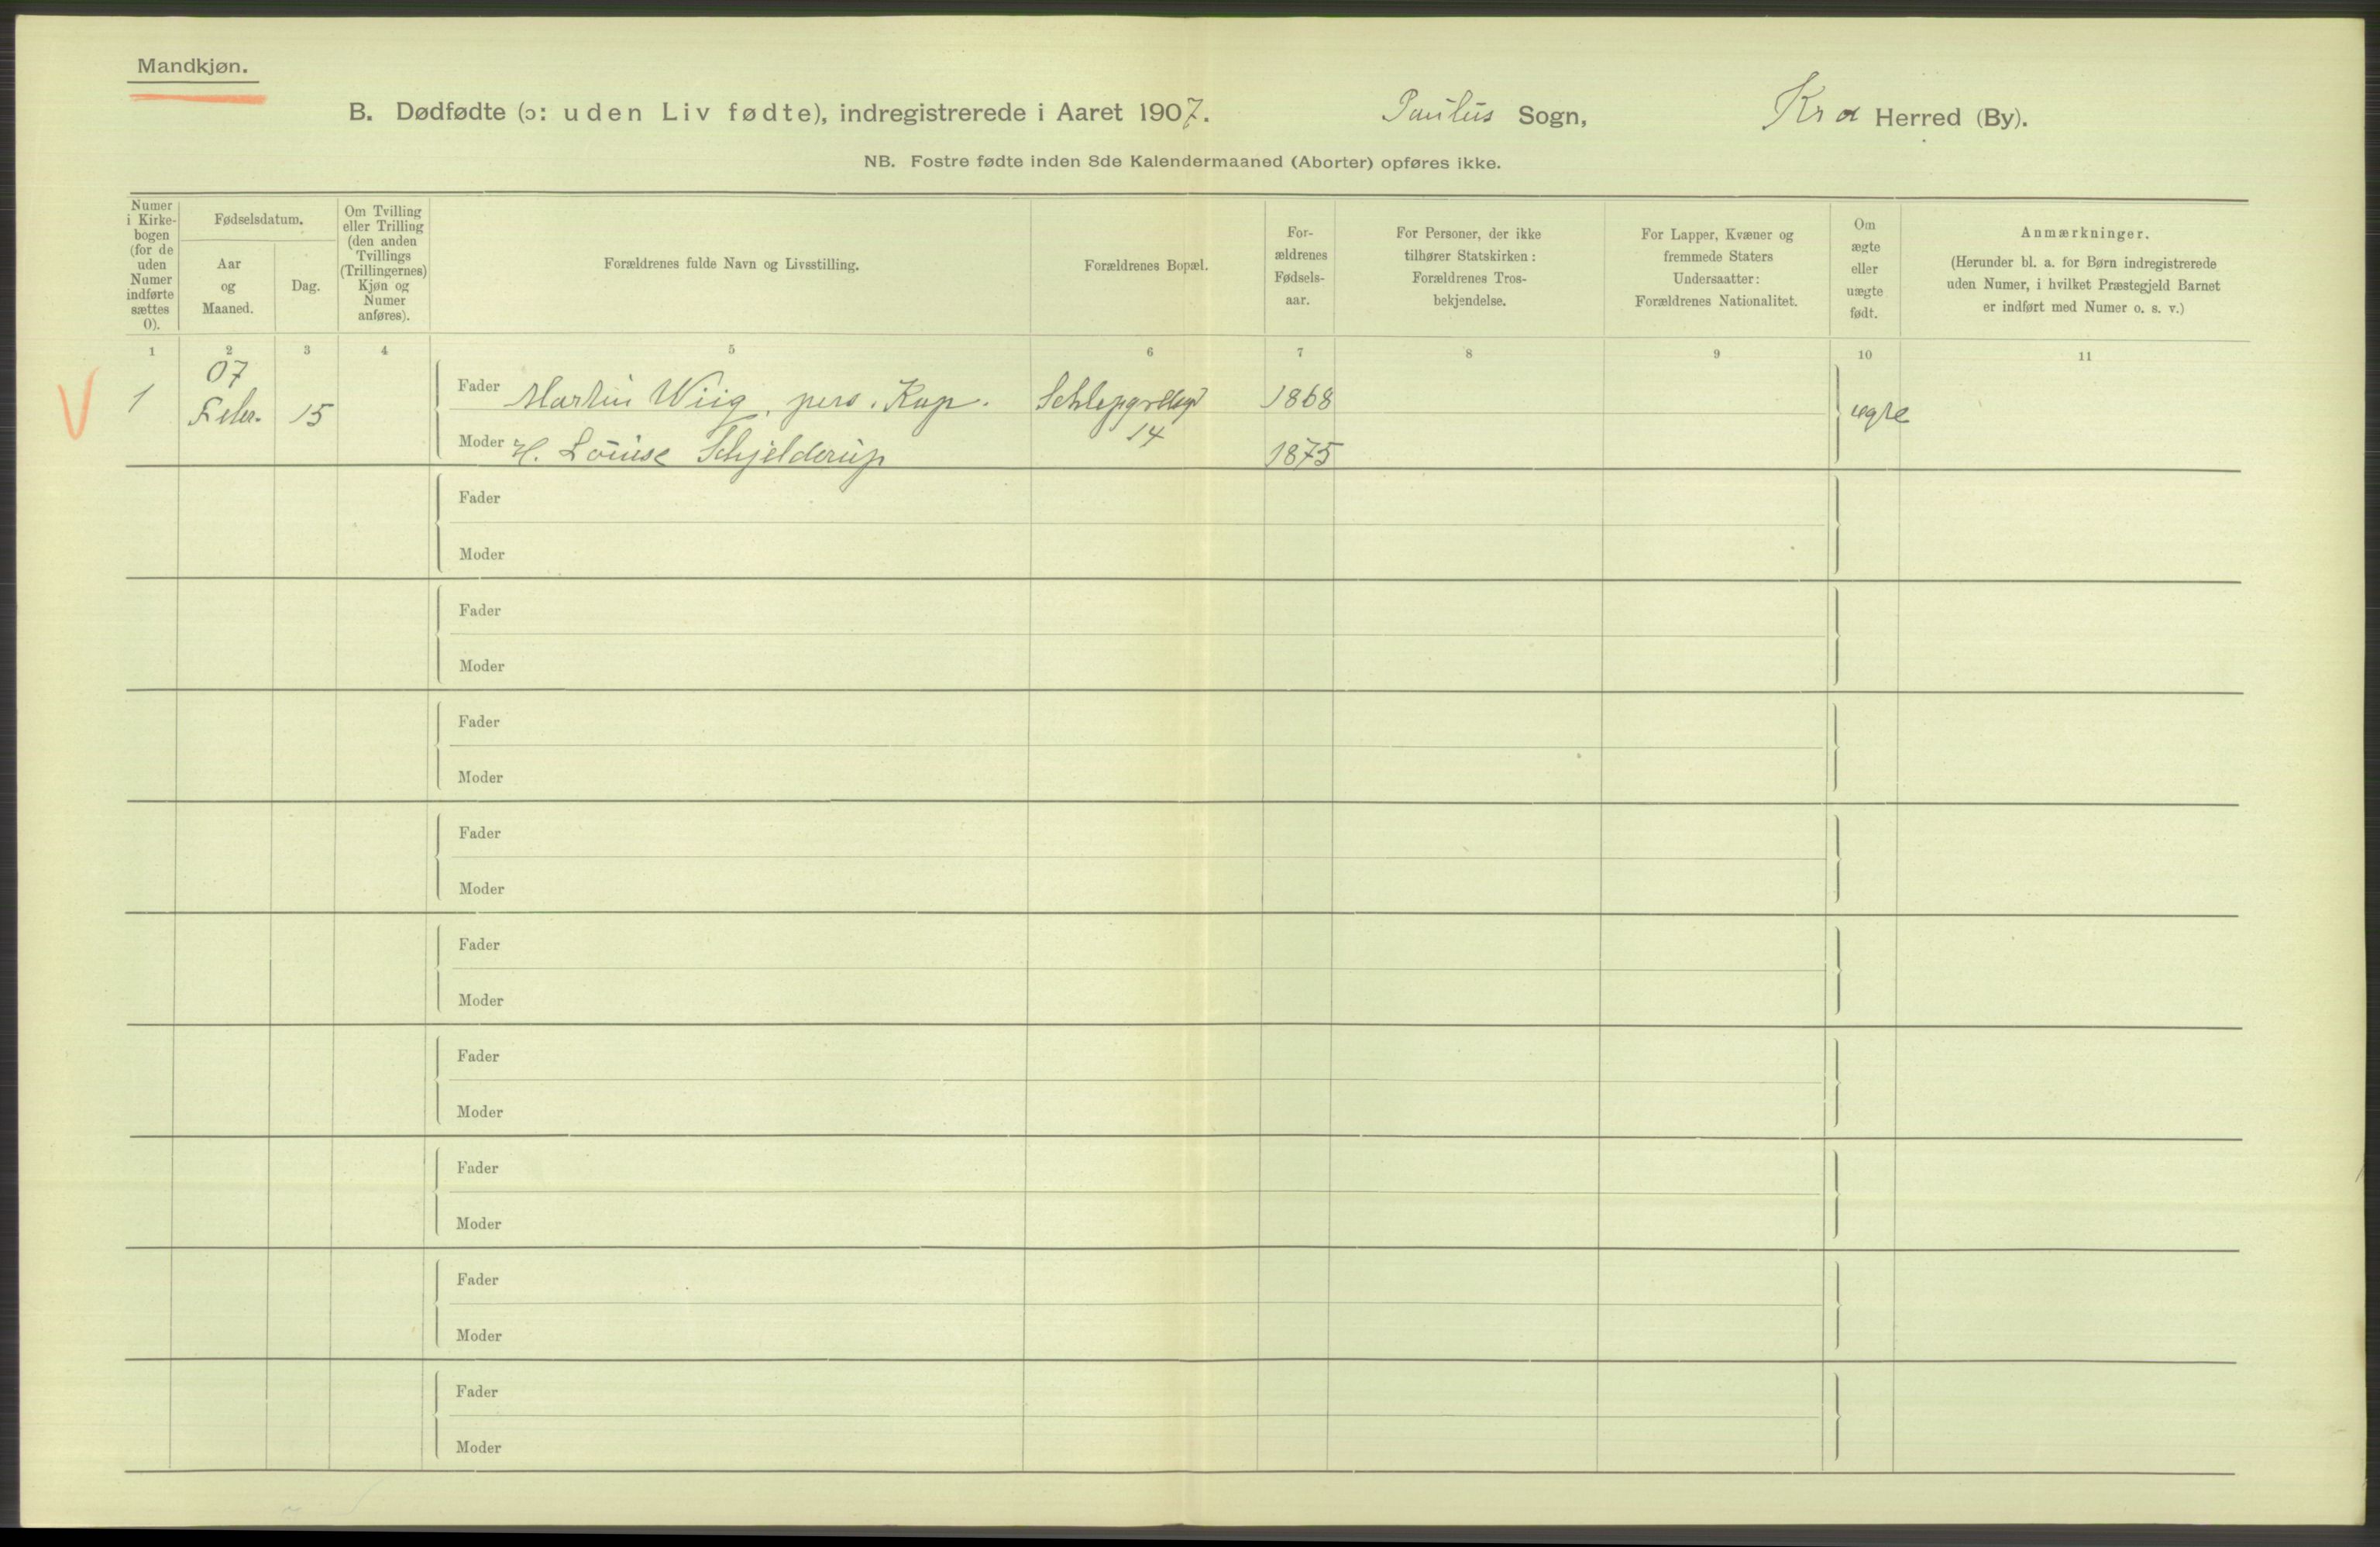 Mandkjøn.
B. Dødfødte (ɔ: uden Liv fødte), indregistrerede i Aaret 1907. Paulus Sogn, Kra Herred (By).
NB. Fostre fødte inden 8de Kalendermaaned (Aborter) opføres ikke.
Numer
i Kirke-
bogen
(for de
uden
Numer
indførte
sættes
0).
Fødselsdatum.
Aar
og
Maaned.
Dag.
Om Tvilling
eller Trilling
(den anden
Tvillings
(Trillingernes)
Kjøn og
Numer
anføres).
Forældrenes fulde Navn og Livsstilling.
Forældrenes Bopæl.
For-
ældrenes
Fødsels-
aar.
For Personer, der ikke
tilhører Statskirken:
Forældrenes Tros-
bekjendelse.
For Lapper, Kvæner og
fremmede Staters
Undersaatter:
Forældrenes Nationalitet.
Om
ægte
eller
uægte
født.
Anmærkninger.
(Herunder bl. a. for Børn indregistrerede
uden Numer, i hvilket Præstegjeld Barnet
er indført med Numer o. s. v.)
1 2 3 4 5 6 7 8 9 10 11
V 1 07 Febr. 15
Fader Martin Wiig, pers. Kap. 1868
14
Moder H. Louise Schjelderup 1875
ægte
Fader
Moder
Fader
Moder
Fader
Moder
Fader
Moder
Fader
Moder
Fader
Moder
Fader
Moder
Fader
Moder
Fader
Moder